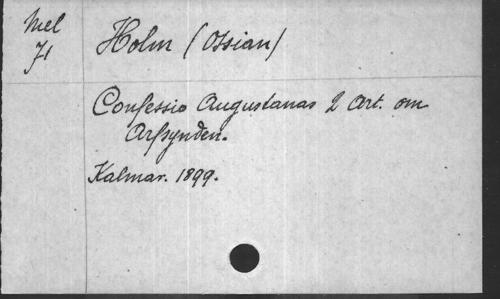 Mel
71
Holm (Ossian)
Confessio Augustanas 2 Art. om
Arfsynden.
Kalmar. 1899.